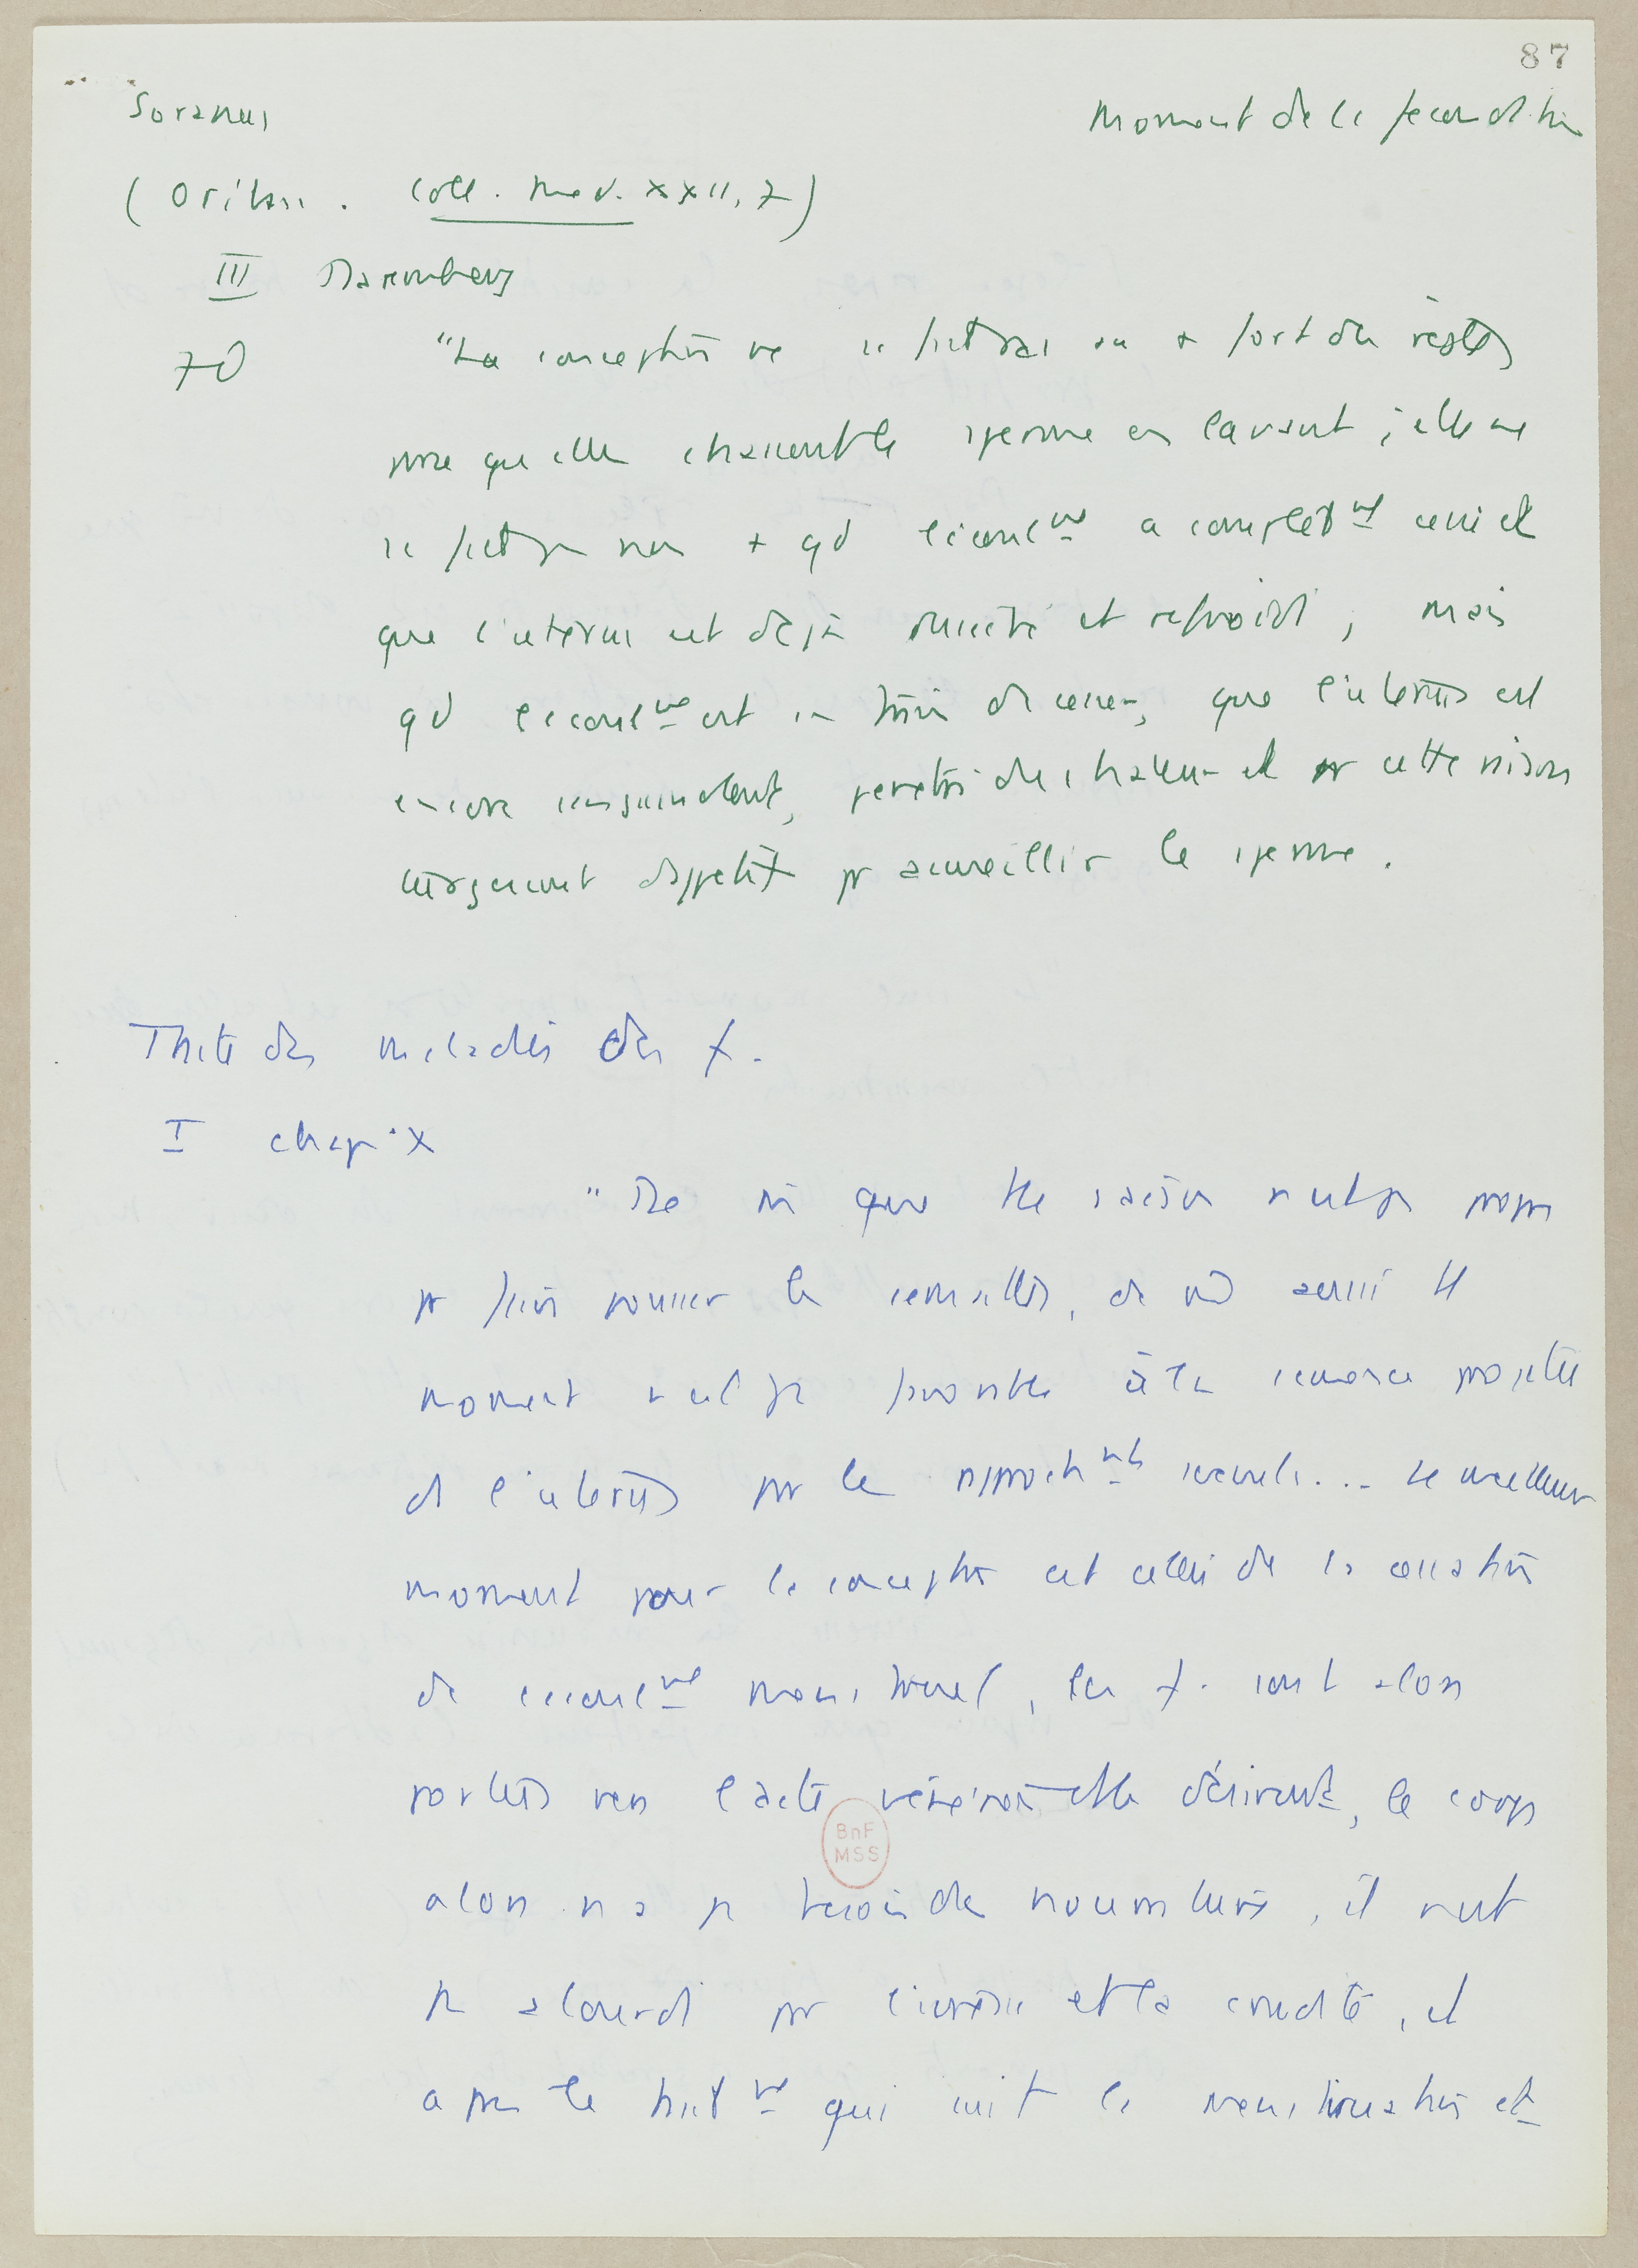 87
Soranus
Moment de la fecondation
(Oribase. Coll. Med. XXII, 7)
III Daremberg
70
"La conception ne se fait pas au + fort des règles
parce qu'elle chasseraient le sperme en lavant ; elle ne
se fait pas non + qd l'ecoulmt a completmt cessé et
que l'uterus est déjà humecté et refroidi, mais
qd l'ecoulmt est en train de cesser, que l'uterus est
encore sanguinolent, penetré de chaleur et pr cette raison
turgescent d'appetit pr accueillir le sperme.
Traité des maladies des f.
I chap. X
"De mm que tte saison n'est pas propre
pr faire pousser les semailles, de mm aussi tt
moment n'est pas favorable à la semence projetée
ds l'uterus par les rapprochmts sexuels... Le meilleur
moment pour la conception est celui de la cessation
de l'ecoulmt menstruel, les f. sont alors
portées vers l'acte vénérien et le désirent, le corps
alors n'a pas besoin de nourriture, il n'est
pas alourdi par l'ivresse et la crudité, et
après le traitmt qui suit la menstruation et
BnF
MSS